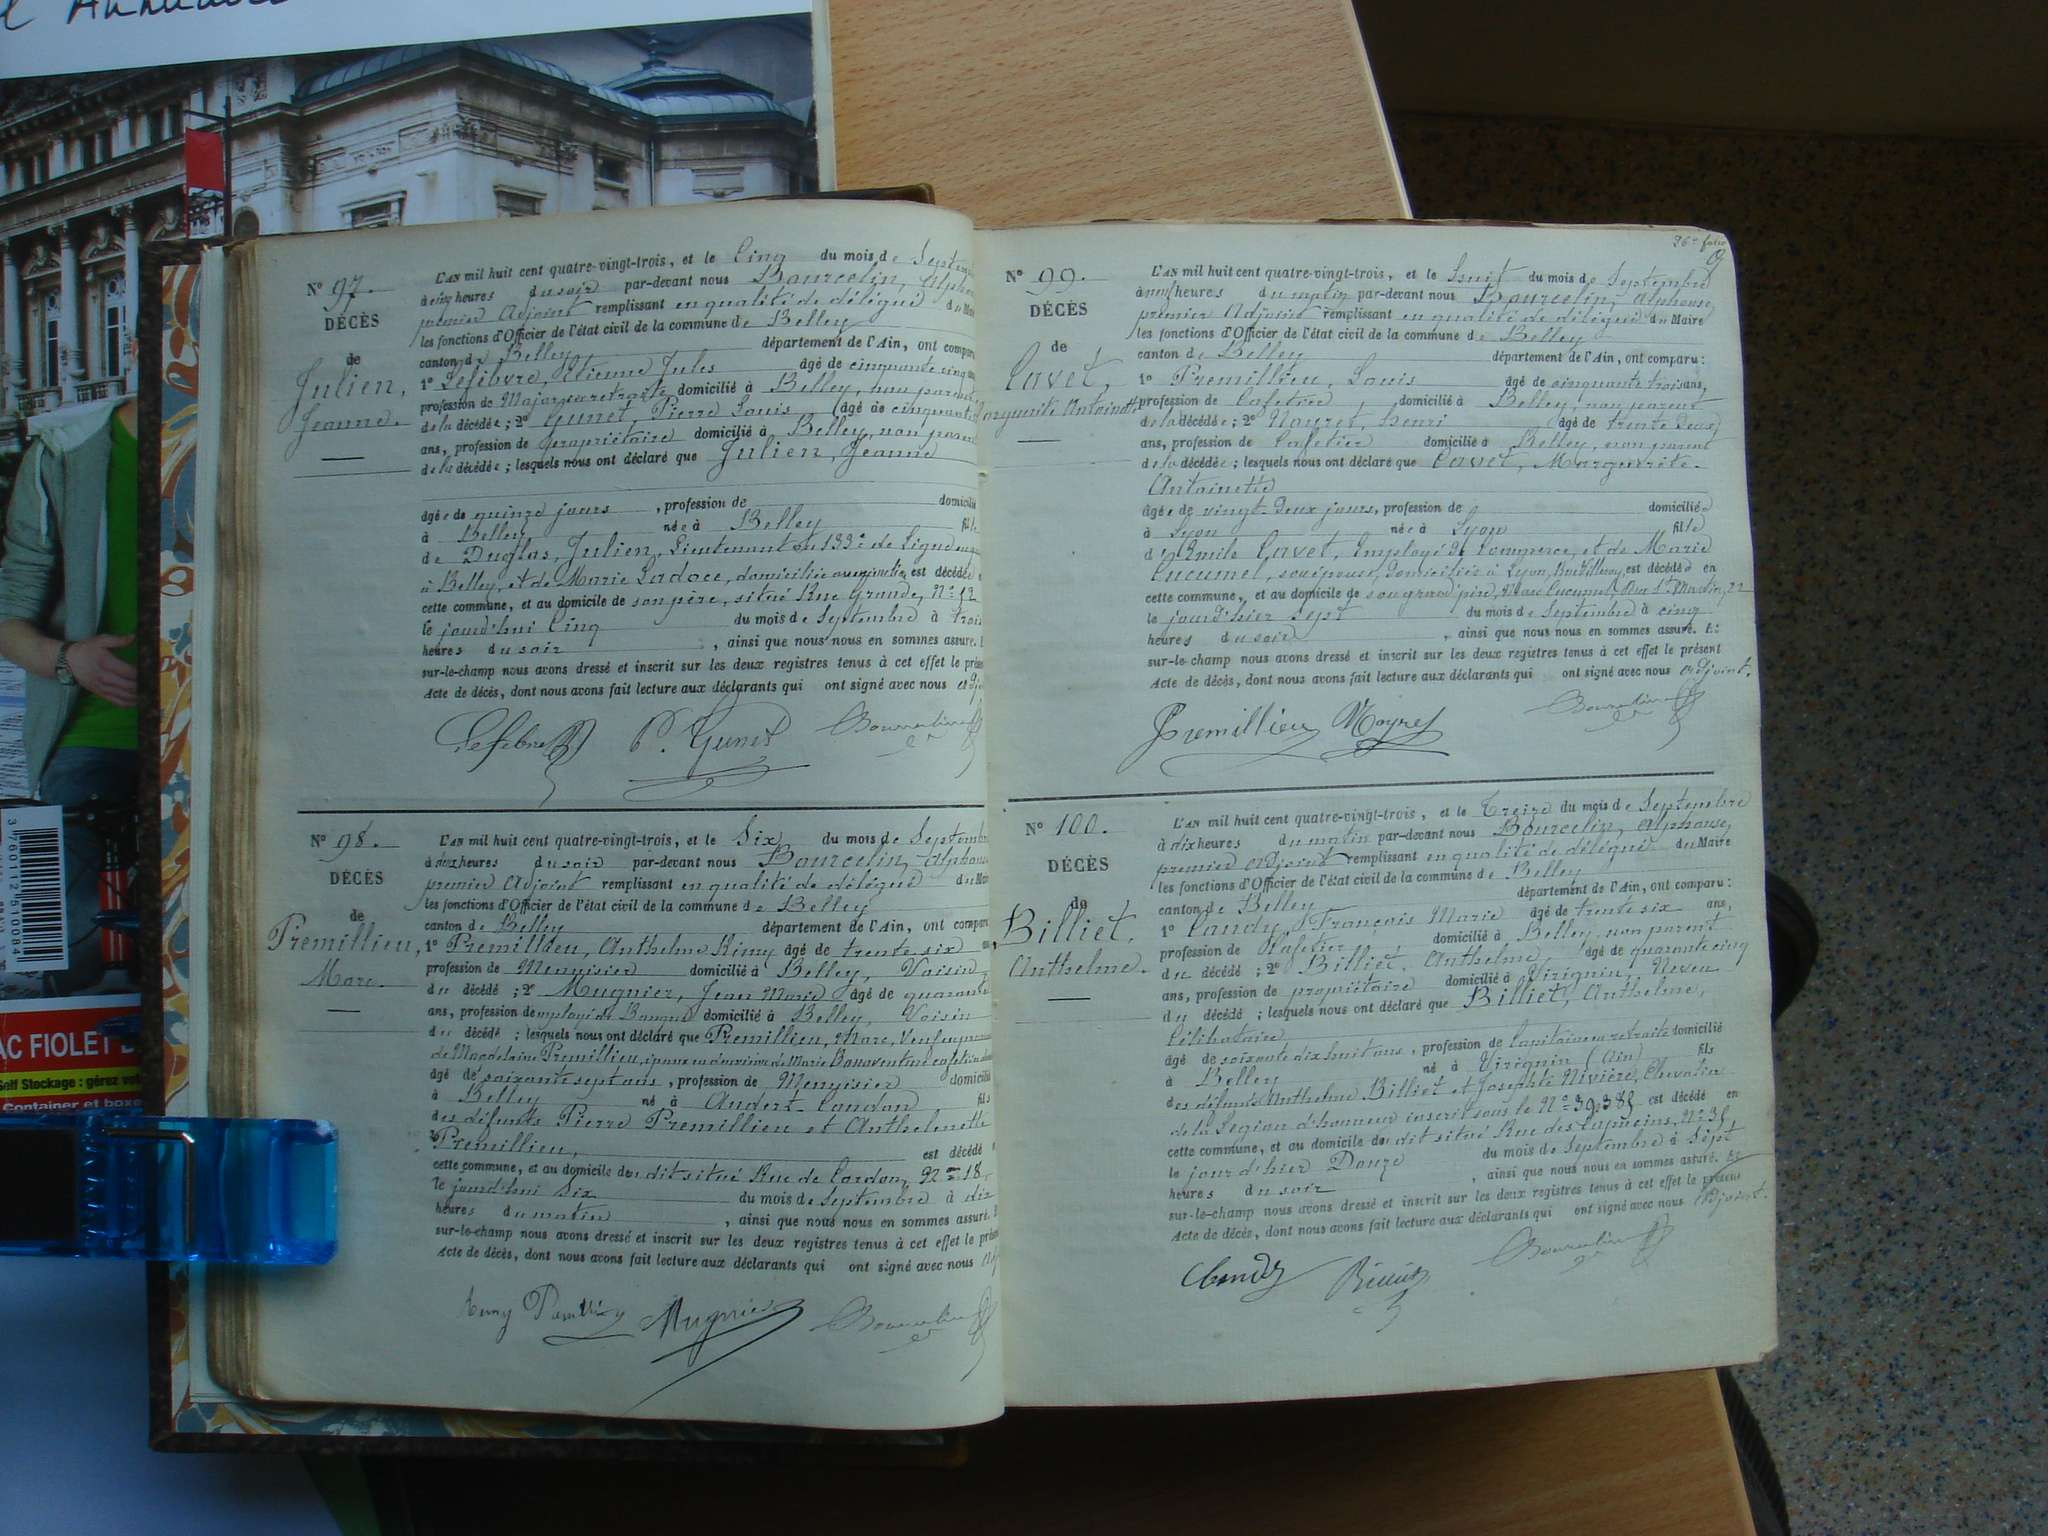 N° 97.
DÉCÈS
de
Julien,
Jeanne.
L'AN mil huit cent quatre-vingt-trois, et le Cinq du mois de
à cinq heures du soir par-devant nous Bourcelin,
premier Adjoint remplissant en qualité de délégué du
les fonctions d'Officier de l'état civil de la commune de Belley
canton de Belley département de l'Ain, ont
1° Lefebvre, Etienne Jules âgé de cinquante cinq
profession de Major en retraite domicilié à Belley, non
de la décédée ; 2° Gunet, Pierre Louis âgé de
ans, profession de propriétaire domicilié à Belley, non parent
de la décédée ; lesquels nous ont déclaré que Julien, Jeanne
âgée de quinze jours , profession de domiciliée
à Belley née à Belley fille
de Duglas, Julien, Lieutenant au 133e de Ligne
à Belley, et de Marie Ladoce, domiciliée est décédée
cette commune, et au domicile de son père, situé Rue Grande, N° 12
le jourd'hui Cinq du mois de Septembre à trois
heures du soir , ainsi que nous nous en sommes assuré.
sur-le-champ nous avons dressé et inscrit sur les deux registres tenus à cet effet le
Acte de décès, dont nous avons fait lecture aux déclarants qui ont signé avec nous
Lefebvre P. Gunet Bourcelin
N° 98.
DÉCÈS
de
Premillieu,
Marc.
L'AN mil huit cent quatre-vingt-trois, et le Six du mois de Septembre
à dix heures du soir par-devant nous Bourcelin, Alphonse
premier Adjoint remplissant en qualité de délégué du Maire
les fonctions d'Officier de l'état civil de la commune de Belley
canton de Belley département de l'Ain, ont
1° Premillieu, Anthelme Rémy âgé de trente six
profession de Menuisier domicilié à Belley, Voisin
du décédé ; 2° Mugnier, Jean Marie âgé de quarante
ans, profession d'employé de Banque domicilié à Belley, Voisin
du décédé ; lesquels nous ont déclaré que Premillieu, Marc, Veuf
de Magdelaine Premillieu, époux en de Marie Bonaventure
âgé de soixante sept ans , profession de Menuisier domicilié
à Belley né à Andert-Condon fils
des défunts Pierre Premillieu et Anthelmette
Premillieu, est décédé
cette commune, et au domicile du dit situé Rue de Cordon, N° 18
le jourd'hui Six du mois de Septembre à dix
heures du matin , ainsi que nous nous en sommes assuré.
sur-le-champ nous avons dressé et inscrit sur les deux registres tenus à cet effet le
Acte de décès, dont nous avons fait lecture aux déclarants qui ont signé avec nous
Remy Mugnier Bourcelin
26e folio
N° 99.
DÉCÈS
de
Cavet,
Marguerite Antoinette
L'AN mil huit cent quatre-vingt-trois, et le huit du mois de Septembre
à neuf heures du matin par-devant nous Bourcelin, Alphonse,
premier Adjoint remplissant en qualité de délégué du Maire
les fonctions d'Officier de l'état civil de la commune de Belley
canton de Belley département de l'Ain, ont comparu :
1° Premillieu, Louis âgé de cinquante trois ans,
profession de Cafetier, domicilié à Belley, non parent
de la décédée ; 2° Henri âgé de trente deux
ans, profession de Cafetier domicilié à Belley, non parent
de la décédée ; lesquels nous ont déclaré que Cavet, Marguerite-
Antoinette
âgée de vingt-deux jours, profession de domiciliée
à Lyon née à Lyon fille
d'Emile Cavet, Employé de Commerce, et de Marie
Cucumel, son épouse, domiciliés à Lyon, est décédée en
cette commune, et au domicile de son grand père, Marc Cucumel, Rue St Martin, 22
le jour d'hier Sept du mois de Septembre à cinq
heures du soir , ainsi que nous nous en sommes assuré. Et
sur-le-champ nous avons dressé et inscrit sur les deux registres tenus à cet effet le présent
Acte de décès, dont nous avons fait lecture aux déclarants qui ont signé avec nous adjoint.
Premillieu Bourcelin
N° 100.
DÉCÈS
de
Billiet,
Anthelme.
L'AN mil huit cent quatre-vingt-trois, et le Treize du mois de Septembre
à dix heures du matin par-devant nous Bourcelin, Alphonse,
premier Adjoint remplissant en qualité de délégué du Maire
les fonctions d'Officier de l'état civil de la commune de Belley
canton de Belley département de l'Ain, ont comparu :
1° Candy, François Marie âgé de trente six ans,
profession de Cafetier domicilié à Belley, non parent
du décédé ; 2° Billiet, Anthelme, âgé de quarante cinq
ans, profession de propriétaire domicilié à Virignin, Neveu
du décédé ; lesquels nous ont déclaré que Billiet, Anthelme,
Célibataire,
âgé de soixante dix huit ans , profession de Capitaine en retraite domicilié
à Belley né à Virignin (Ain) fils
des défunts Anthelme Billiet et Josephte Nivière, Chevalier
de la Légion d'honneur inscrit sous le N° est décédé en
cette commune, et au domicile du dit situé Rue des Capucins, N°
le jour d'hier Douze du mois de Septembre à Sept
heures du soir , ainsi que nous nous en sommes assuré. Et
sur-le-champ nous avons dressé et inscrit sur les deux registres tenus à cet effet le présent
Acte de décès, dont nous avons fait lecture aux déclarants qui ont signé avec nous Adjoint.
Candy Billiet Bourcelin
AC FIOLET
Self Stockage : gérez
Container et
3 760112 510084